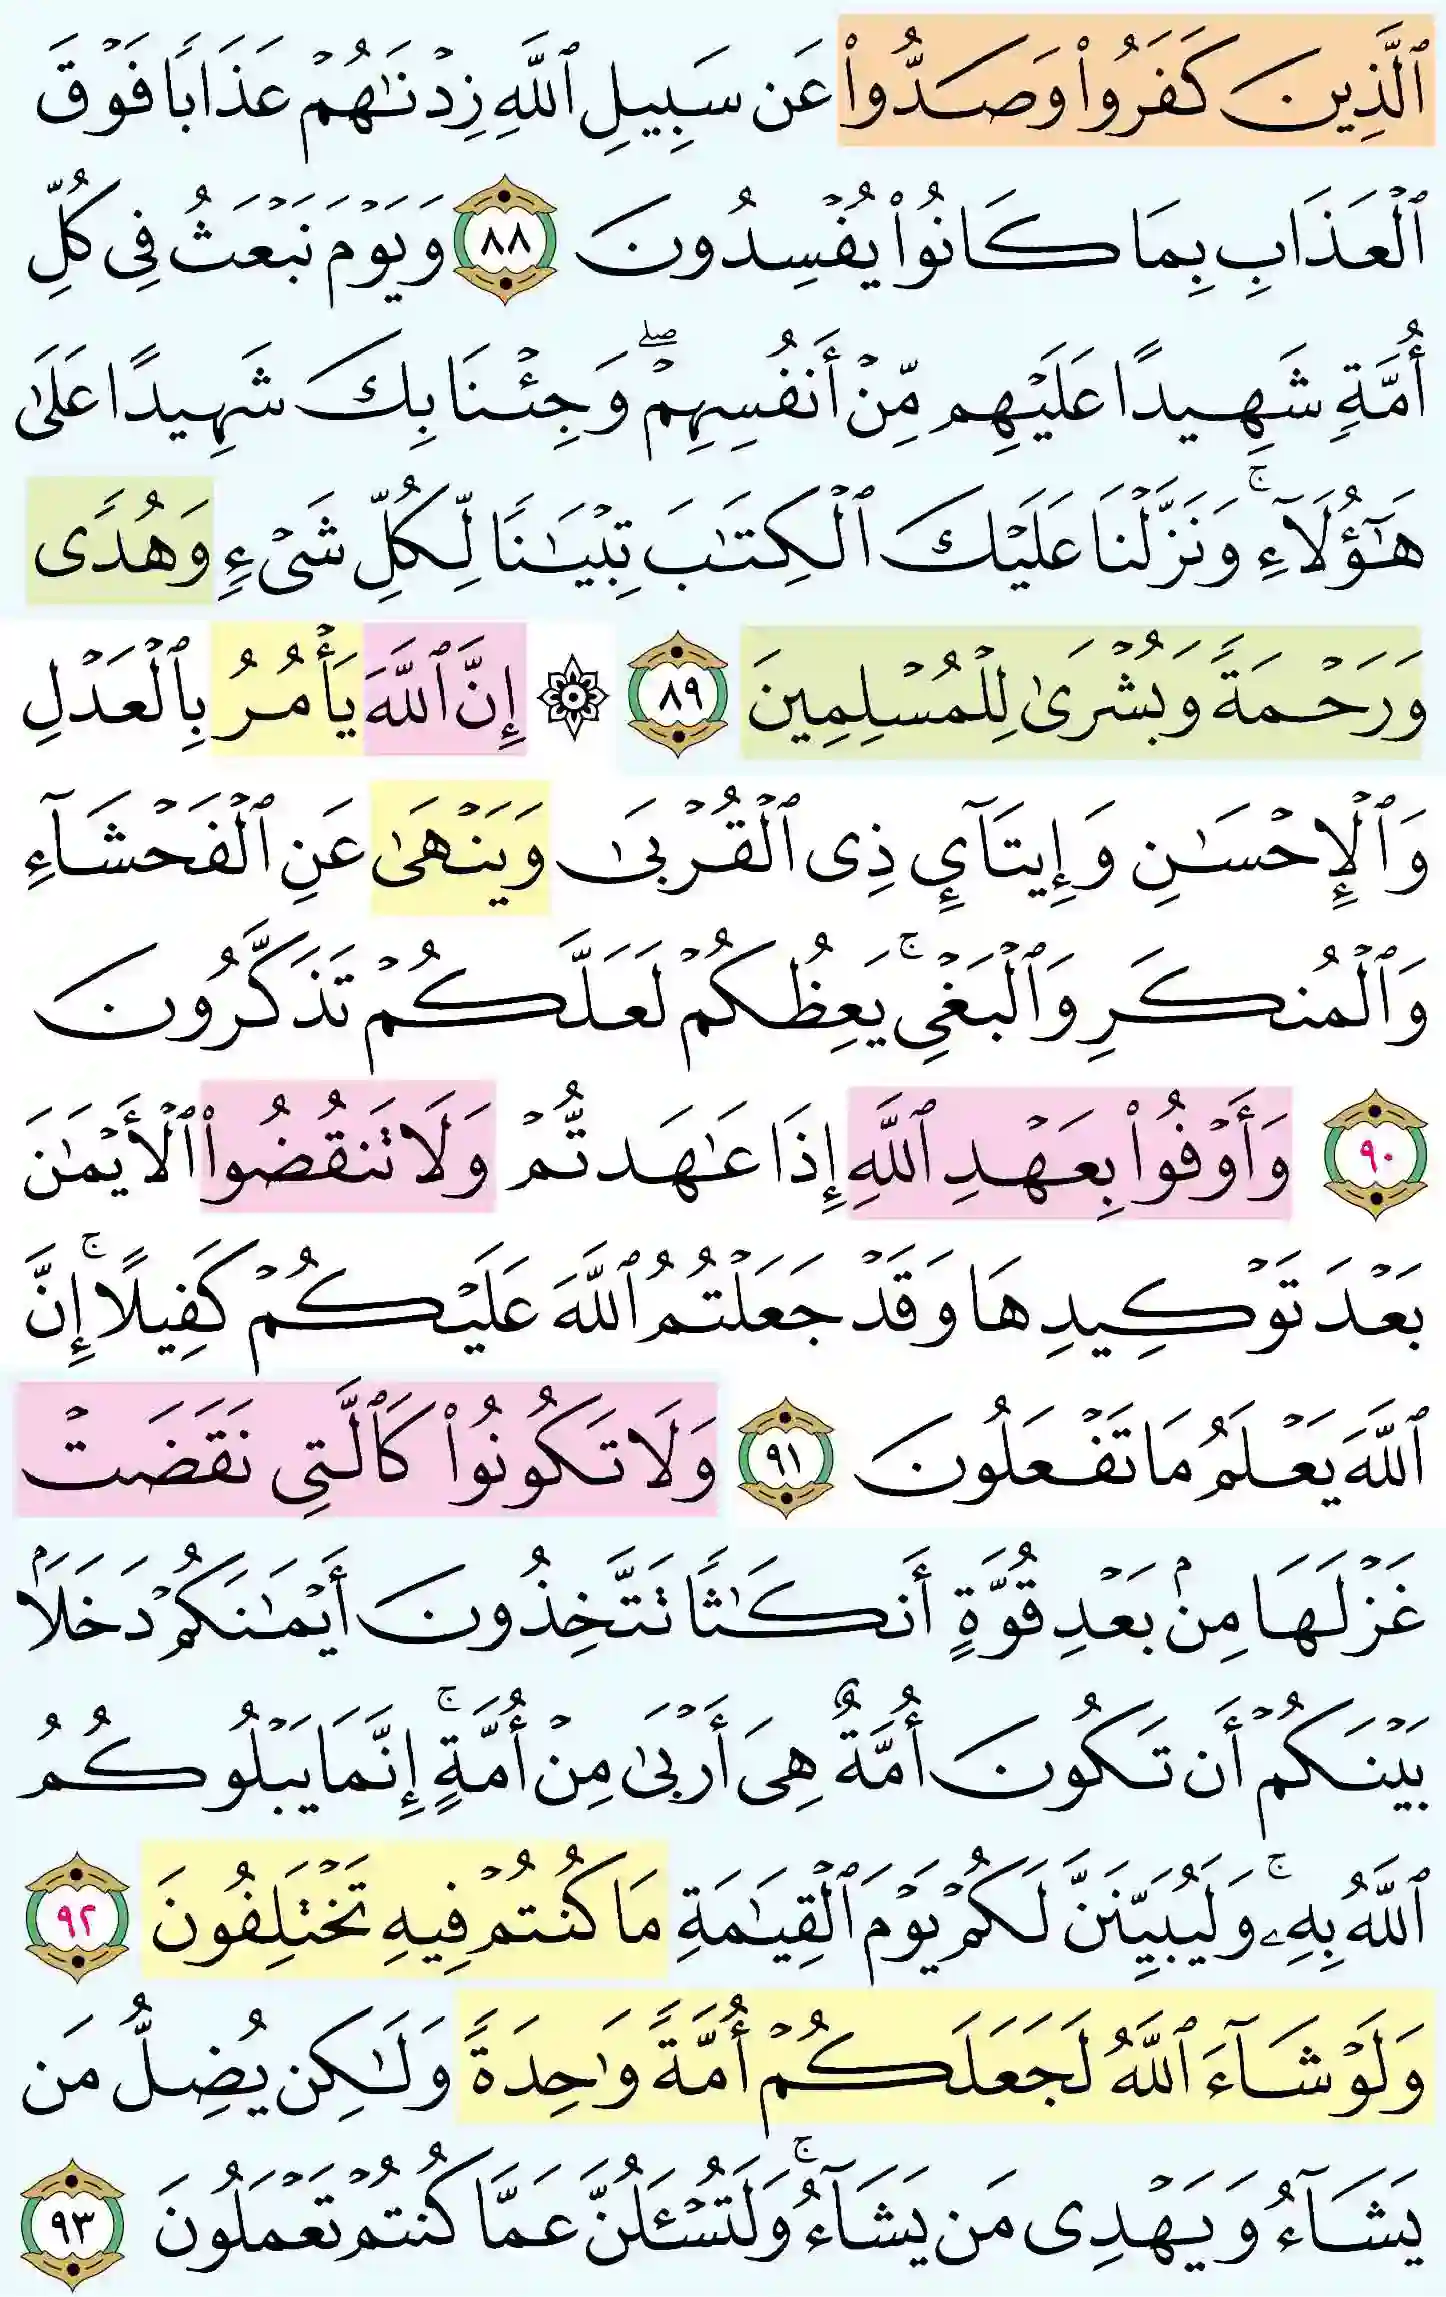 ٱلَّذِينَ كَفَرُوا۟ وَصَدُّوا۟ عَن سَبِيلِ ٱللَّهِ زِدْنَـٰهُمْ عَذَابًا فَوْقَ
ٱلْعَذَابِ بِمَا كَانُوا۟ يُفْسِدُونَ ٨٨ وَيَوْمَ نَبْعَثُ فِى كُلِّ
أُمَّةٍ شَهِيدًا عَلَيْهِم مِّنْ أَنفُسِهِمْ ۖ وَجِئْنَا بِكَ شَهِيدًا عَلَىٰ
هَـٰٓؤُلَآءِ ۚ وَنَزَّلْنَا عَلَيْكَ ٱلْكِتَـٰبَ تِبْيَـٰنًا لِّكُلِّ شَىْءٍ وَهُدًى
وَرَحْمَةً وَبُشْرَىٰ لِلْمُسْلِمِينَ ٨٩ ۞ إِنَّ ٱللَّهَ يَأْمُرُ بِٱلْعَدْلِ
وَٱلْإِحْسَـٰنِ وَإِيتَآئِ ذِى ٱلْقُرْبَىٰ وَيَنْهَىٰ عَنِ ٱلْفَحْشَآءِ
وَٱلْمُنكَرِ وَٱلْبَغْىِ ۚ يَعِظُكُمْ لَعَلَّكُمْ تَذَكَّرُونَ
٩٠ وَأَوْفُوا۟ بِعَهْدِ ٱللَّهِ إِذَا عَـٰهَدتُّمْ وَلَا تَنقُضُوا۟ ٱلْأَيْمَـٰنَ
بَعْدَ تَوْكِيدِهَا وَقَدْ جَعَلْتُمُ ٱللَّهَ عَلَيْكُمْ كَفِيلًا ۚ إِنَّ
ٱللَّهَ يَعْلَمُ مَا تَفْعَلُونَ ٩١ وَلَا تَكُونُوا۟ كَٱلَّتِى نَقَضَتْ
غَزْلَهَا مِنۢ بَعْدِ قُوَّةٍ أَنكَـٰثًا تَتَّخِذُونَ أَيْمَـٰنَكُمْ دَخَلًۢا
بَيْنَكُمْ أَن تَكُونَ أُمَّةٌ هِىَ أَرْبَىٰ مِنْ أُمَّةٍ ۚ إِنَّمَا يَبْلُوكُمُ
ٱللَّهُ بِهِۦ ۚ وَلَيُبَيِّنَنَّ لَكُمْ يَوْمَ ٱلْقِيَـٰمَةِ مَا كُنتُمْ فِيهِ تَخْتَلِفُونَ ٩٢
وَلَوْ شَآءَ ٱللَّهُ لَجَعَلَكُمْ أُمَّةً وَٰحِدَةً وَلَـٰكِن يُضِلُّ مَن
يَشَآءُ وَيَهْدِى مَن يَشَآءُ ۚ وَلَتُسْـَٔلُنَّ عَمَّا كُنتُمْ تَعْمَلُونَ ٩٣